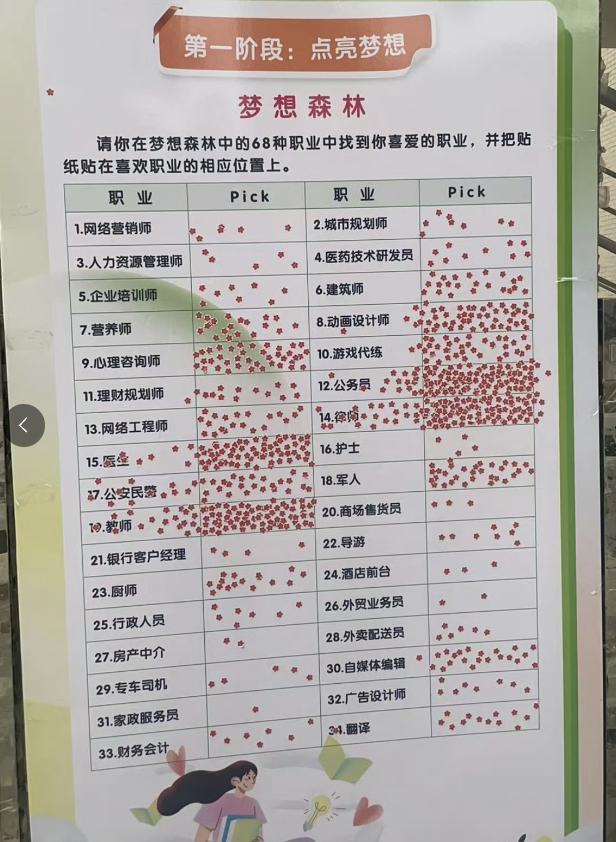 第一阶段：点亮梦想
梦想森林
请你在梦想森林中的68种职业中找到你喜爱的职业，并把贴
纸贴在喜欢职业的相应位置上。
职 业 Pick 职 业 Pick
1.网络营销师 2.城市规划师
3.人力资源管理师 4.医药技术研发员
5.企业培训师 6.建筑师
7.营养师 8.动画设计师
9.心理咨询师 10.游戏代练
11.理财规划师 12.公务员
13.网络工程师 14.律师
15.医生 16.护士
17.公安民警 18.军人
19.教师 20.商场售货员
21.银行客户经理 22.导游
23.厨师 24.酒店前台
25.行政人员 26.外贸业务员
27.房产中介 28.外卖配送员
29.专车司机 30.自媒体编辑
31.家政服务员 32.广告设计师
33.财务会计 34.翻译